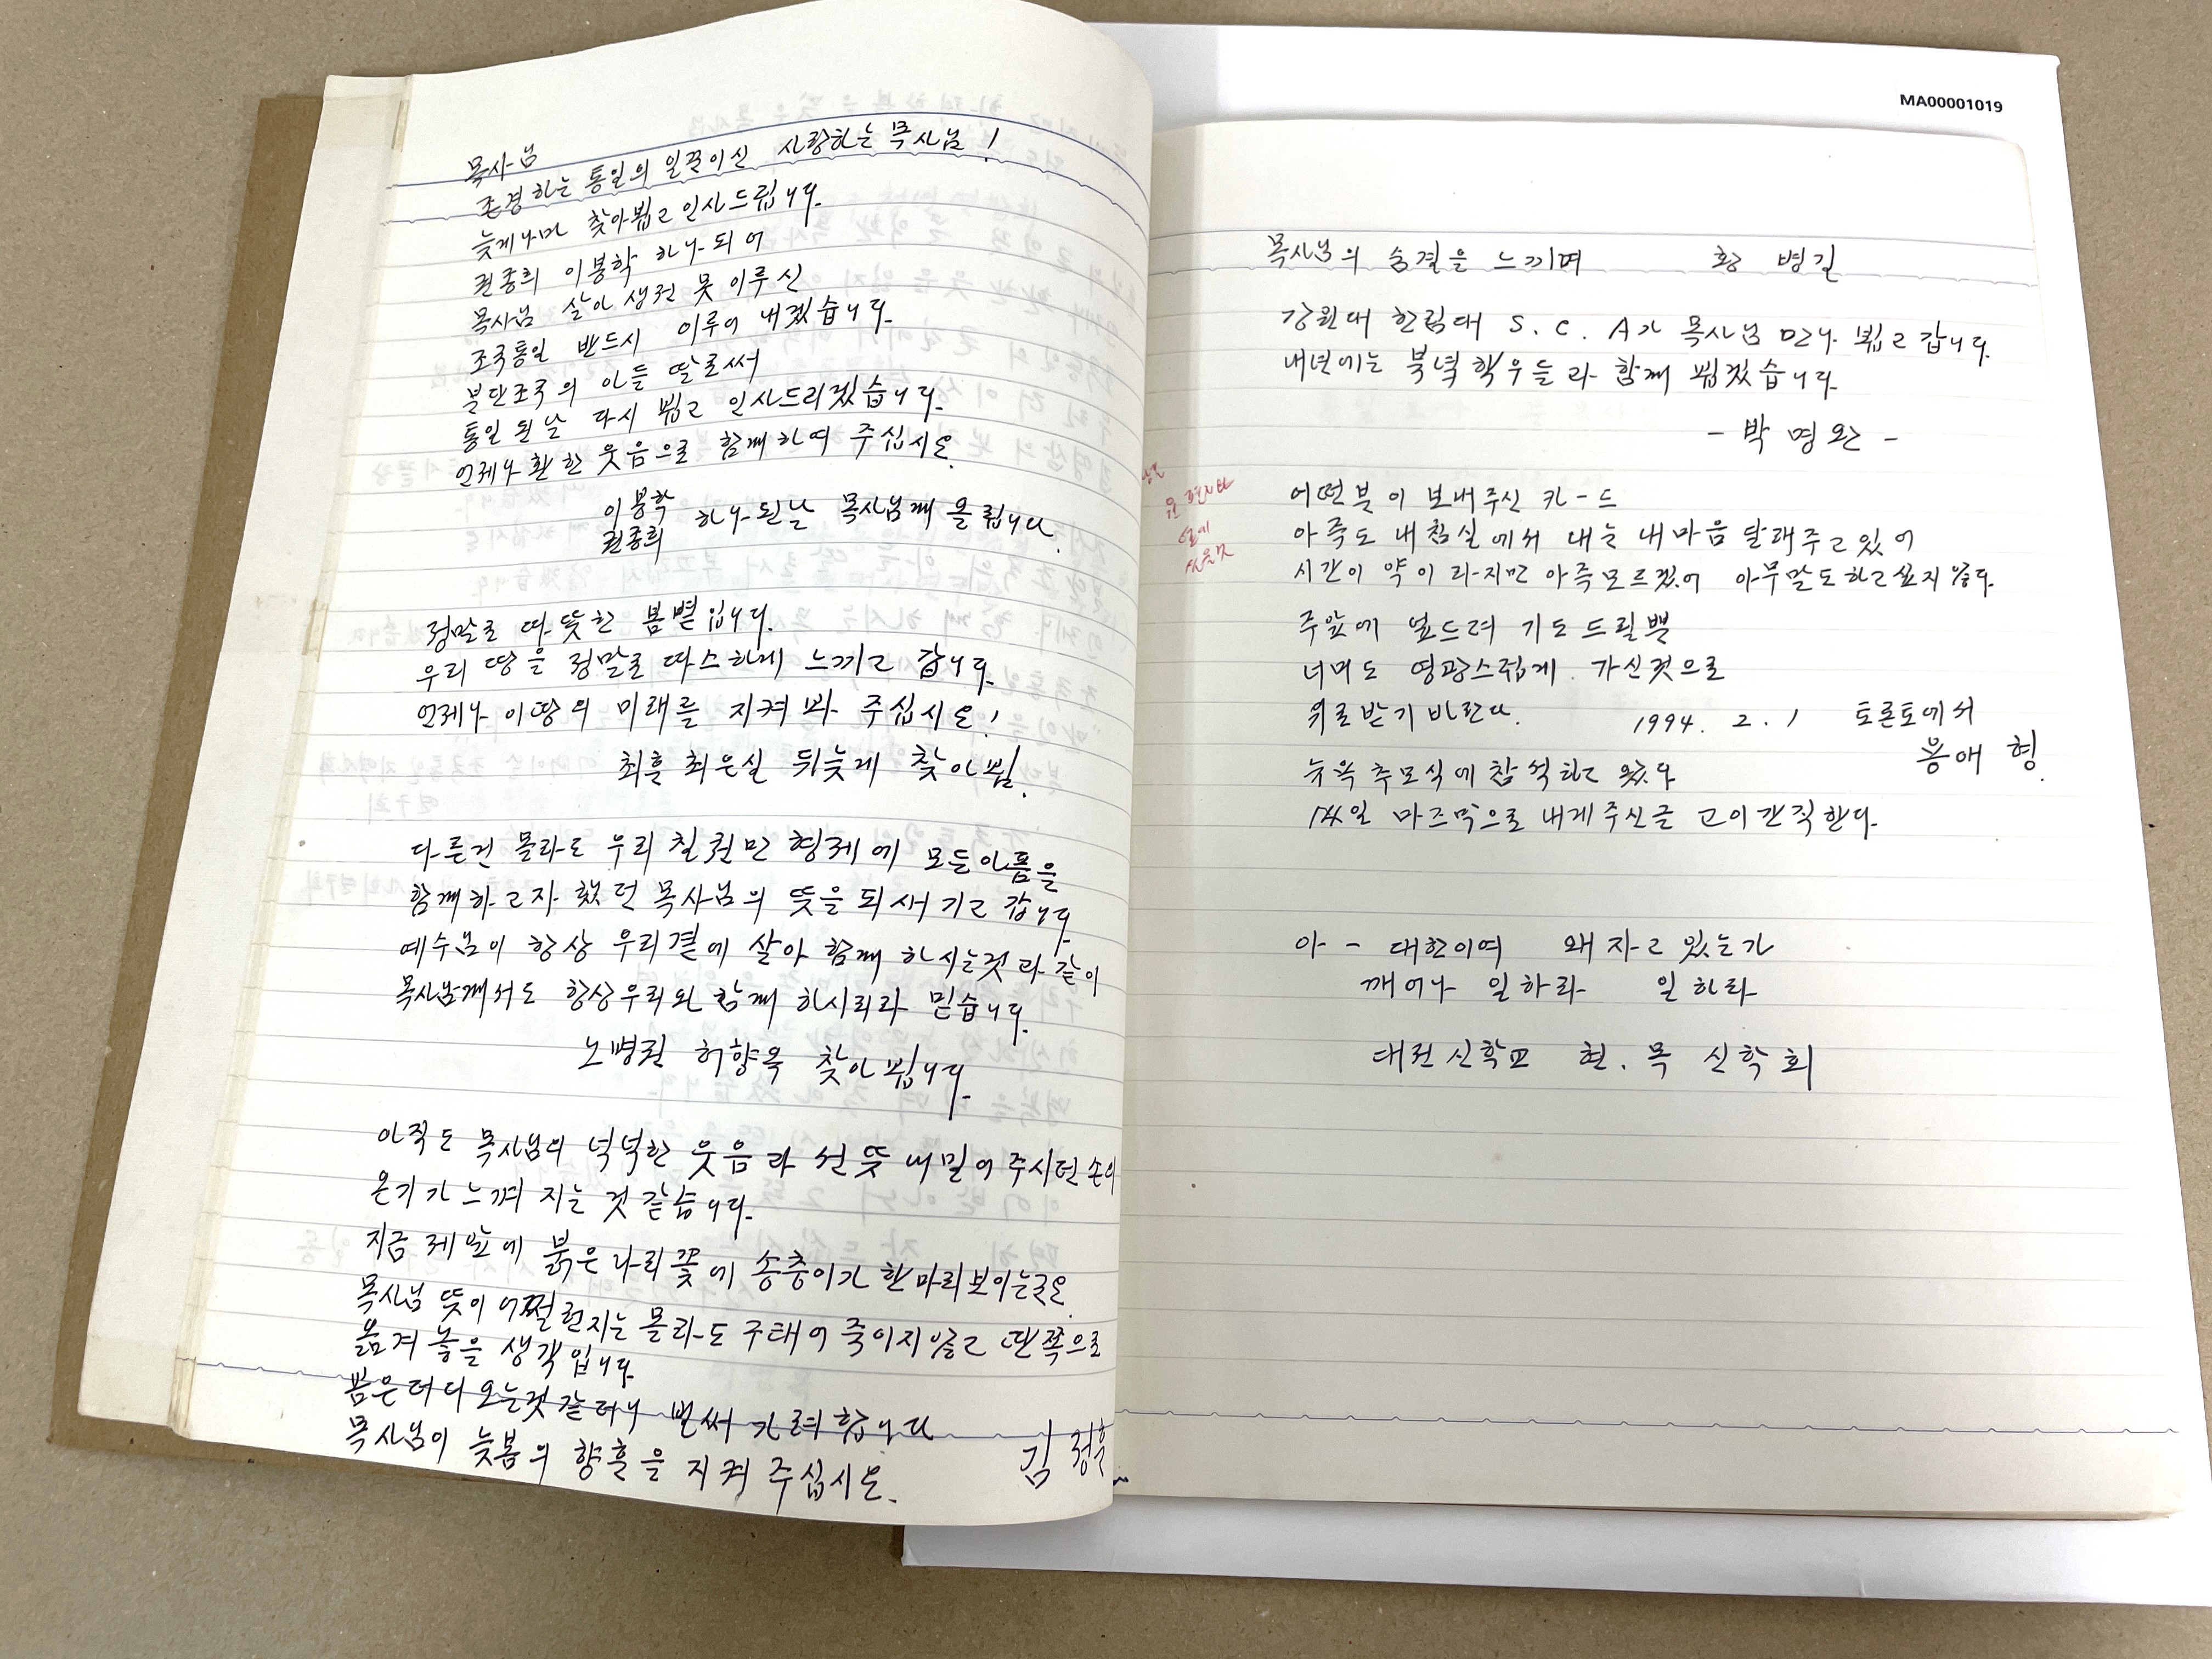 목사님
존경하는 통일의 일꾼이신 사랑하는 목사님!
늦게나마 찾아뵙고 인사드립니다.
권종희 이봉학 하나되어
목사님 살아 생전 못 이루신
조국통일 반드시 이루어 내겠습니다.
분단조국의 아들 딸로써
통일 된 날 다시 뵙고 인사드리겠습니다.
언제나 환한 웃음으로 함께하여 주십시오.
이봉학
권종희 하나된날 목사님께 올립니다.
정말로 따뜻한 봄볕입니다.
우리 땅을 정말로 따스하게 느끼고 갑니다.
언제나 이땅의 미래를 지켜봐 주십시오!
최훈 최은실 뒤늦게 찾아뵘.
다른건 몰라도 우리 칠천만 형제에 모든아픔을
함께하고자 했던 목사님의 뜻을 되새기고 갑니다.
예수님이 항상 우리곁에 살아 함께 하시는것과 같이
목사님께서도 항상우리와 함께 하시리라 믿습니다.
노병권 허향옥 찾아 뵙니다.
아직도 목사님의 넉넉한 웃음과 선뜻 내밀어 주시던 손의
온기가 느껴 지는 것 같습니다.
지금 제앞에 붉은나리꽃에 송충이가 한마리보이는군요.
목사님 뜻이 어쩔런지는 몰라도 구태어 죽이지않고 딴쪽으로
옮겨 놓을 생각입니다.
봄은더디 오는것 같더니 벌써 가려합니다
목사님이 늦봄의 향훈을 지켜 주십시오.
김 정훈
MA00001019
목사님의 숨결을 느끼며 황 병길
강원대 한림대 S. C. A가 목사님 만나 뵙고 갑니다.
내년에는 북녘학우들과 함께 뵙겠습니다.
- 박 명 완 -
어떤분이 보내주신 카-드
아죽도 내침실에서 내는 내마음 달래주고있어
시간이 약이라지만 아죽모르겠어 아무말도하고싶지않다.
주앞에 엎드려 기도드릴뿐
너머도 영광스럽게 가신것으로
위로받기 바란다. 1994. 2. 1 토론토에서
용애 형.
뉴욕 추모식에 참석하고 왔다
마즈막으로 내게주신글 고이간직한다.
아 - 대한이여 왜 자고 있는가
깨어나 일하라 일하라
대전신학교 현. 목 신학회